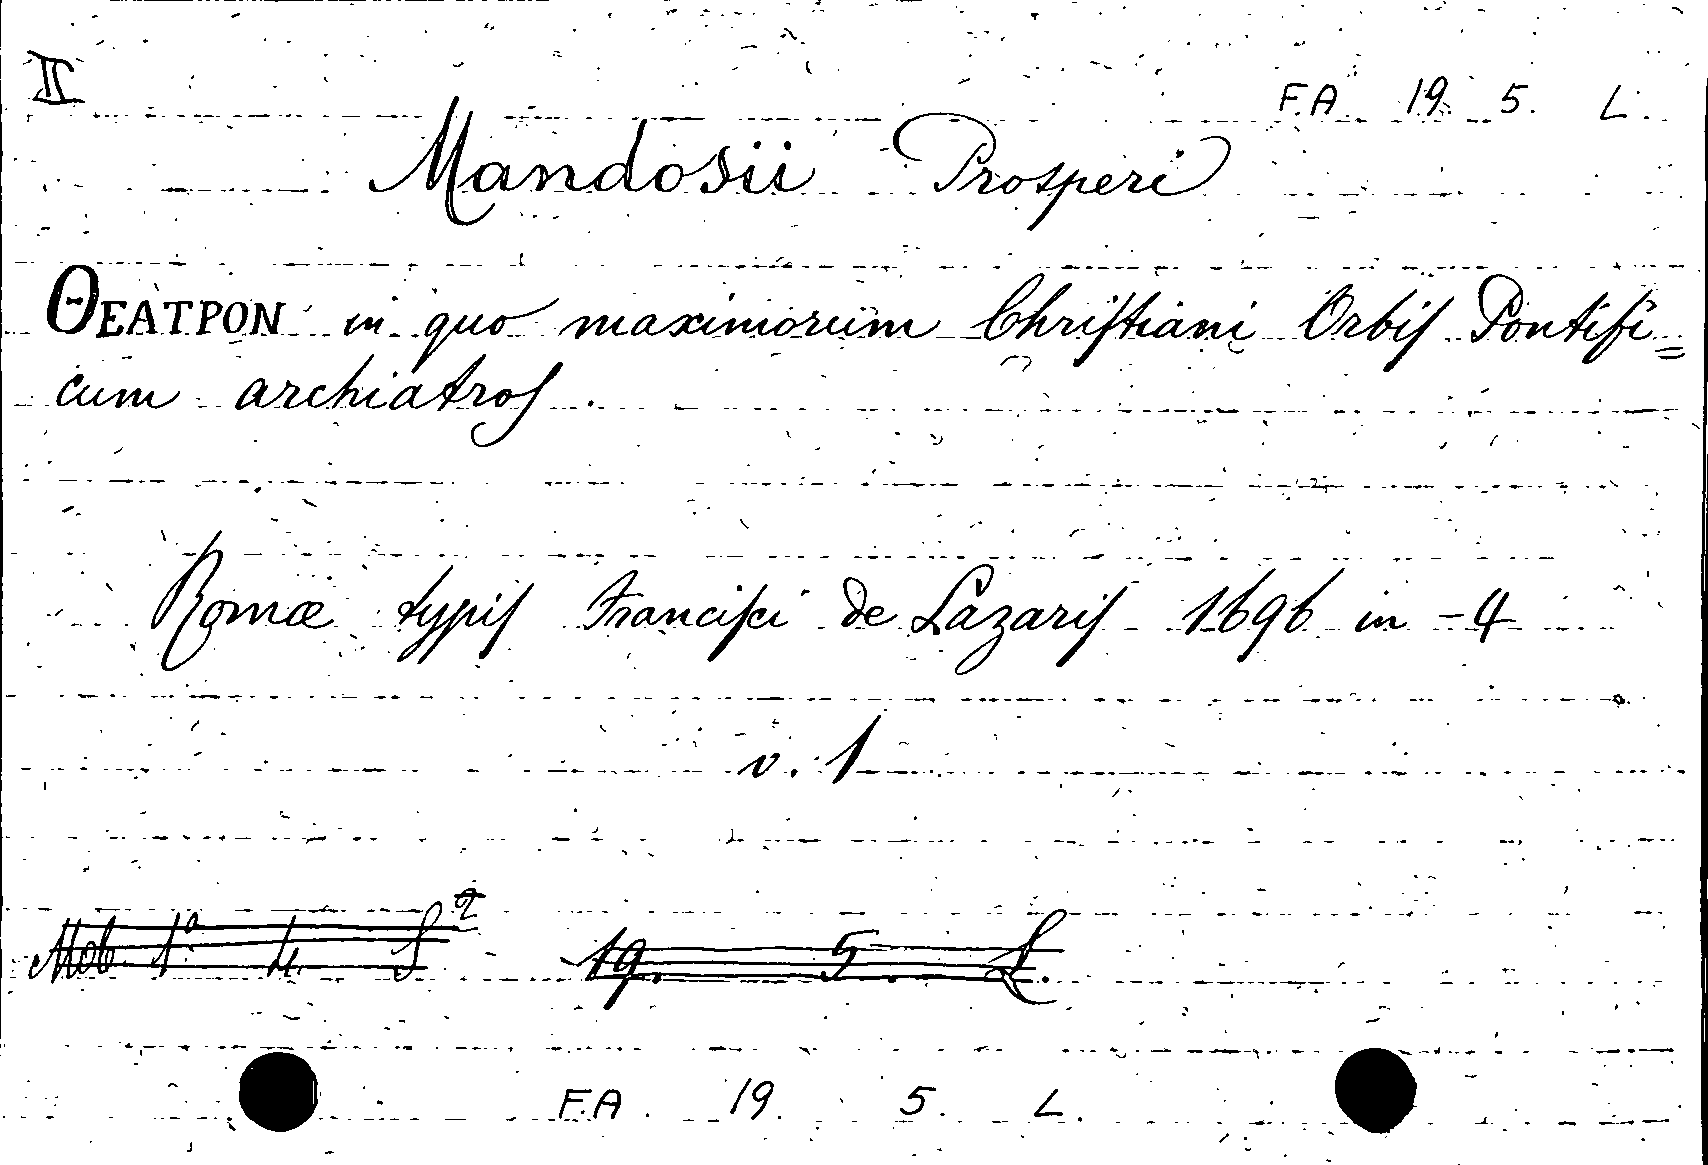 II
F.A. 19. 5. L.
Mandosii Prosperi
ΘΕΑΤΡΟΝ in quo maximorum Chriſtiani Orbiſ Pontifi=
cum archiatroſ.
Romæ typiſ Franciſci de Lazariſ 1696 in -4
v. 1
Mob 1º 4. S² 19. 5. L.
F.A. 19. 5. L.